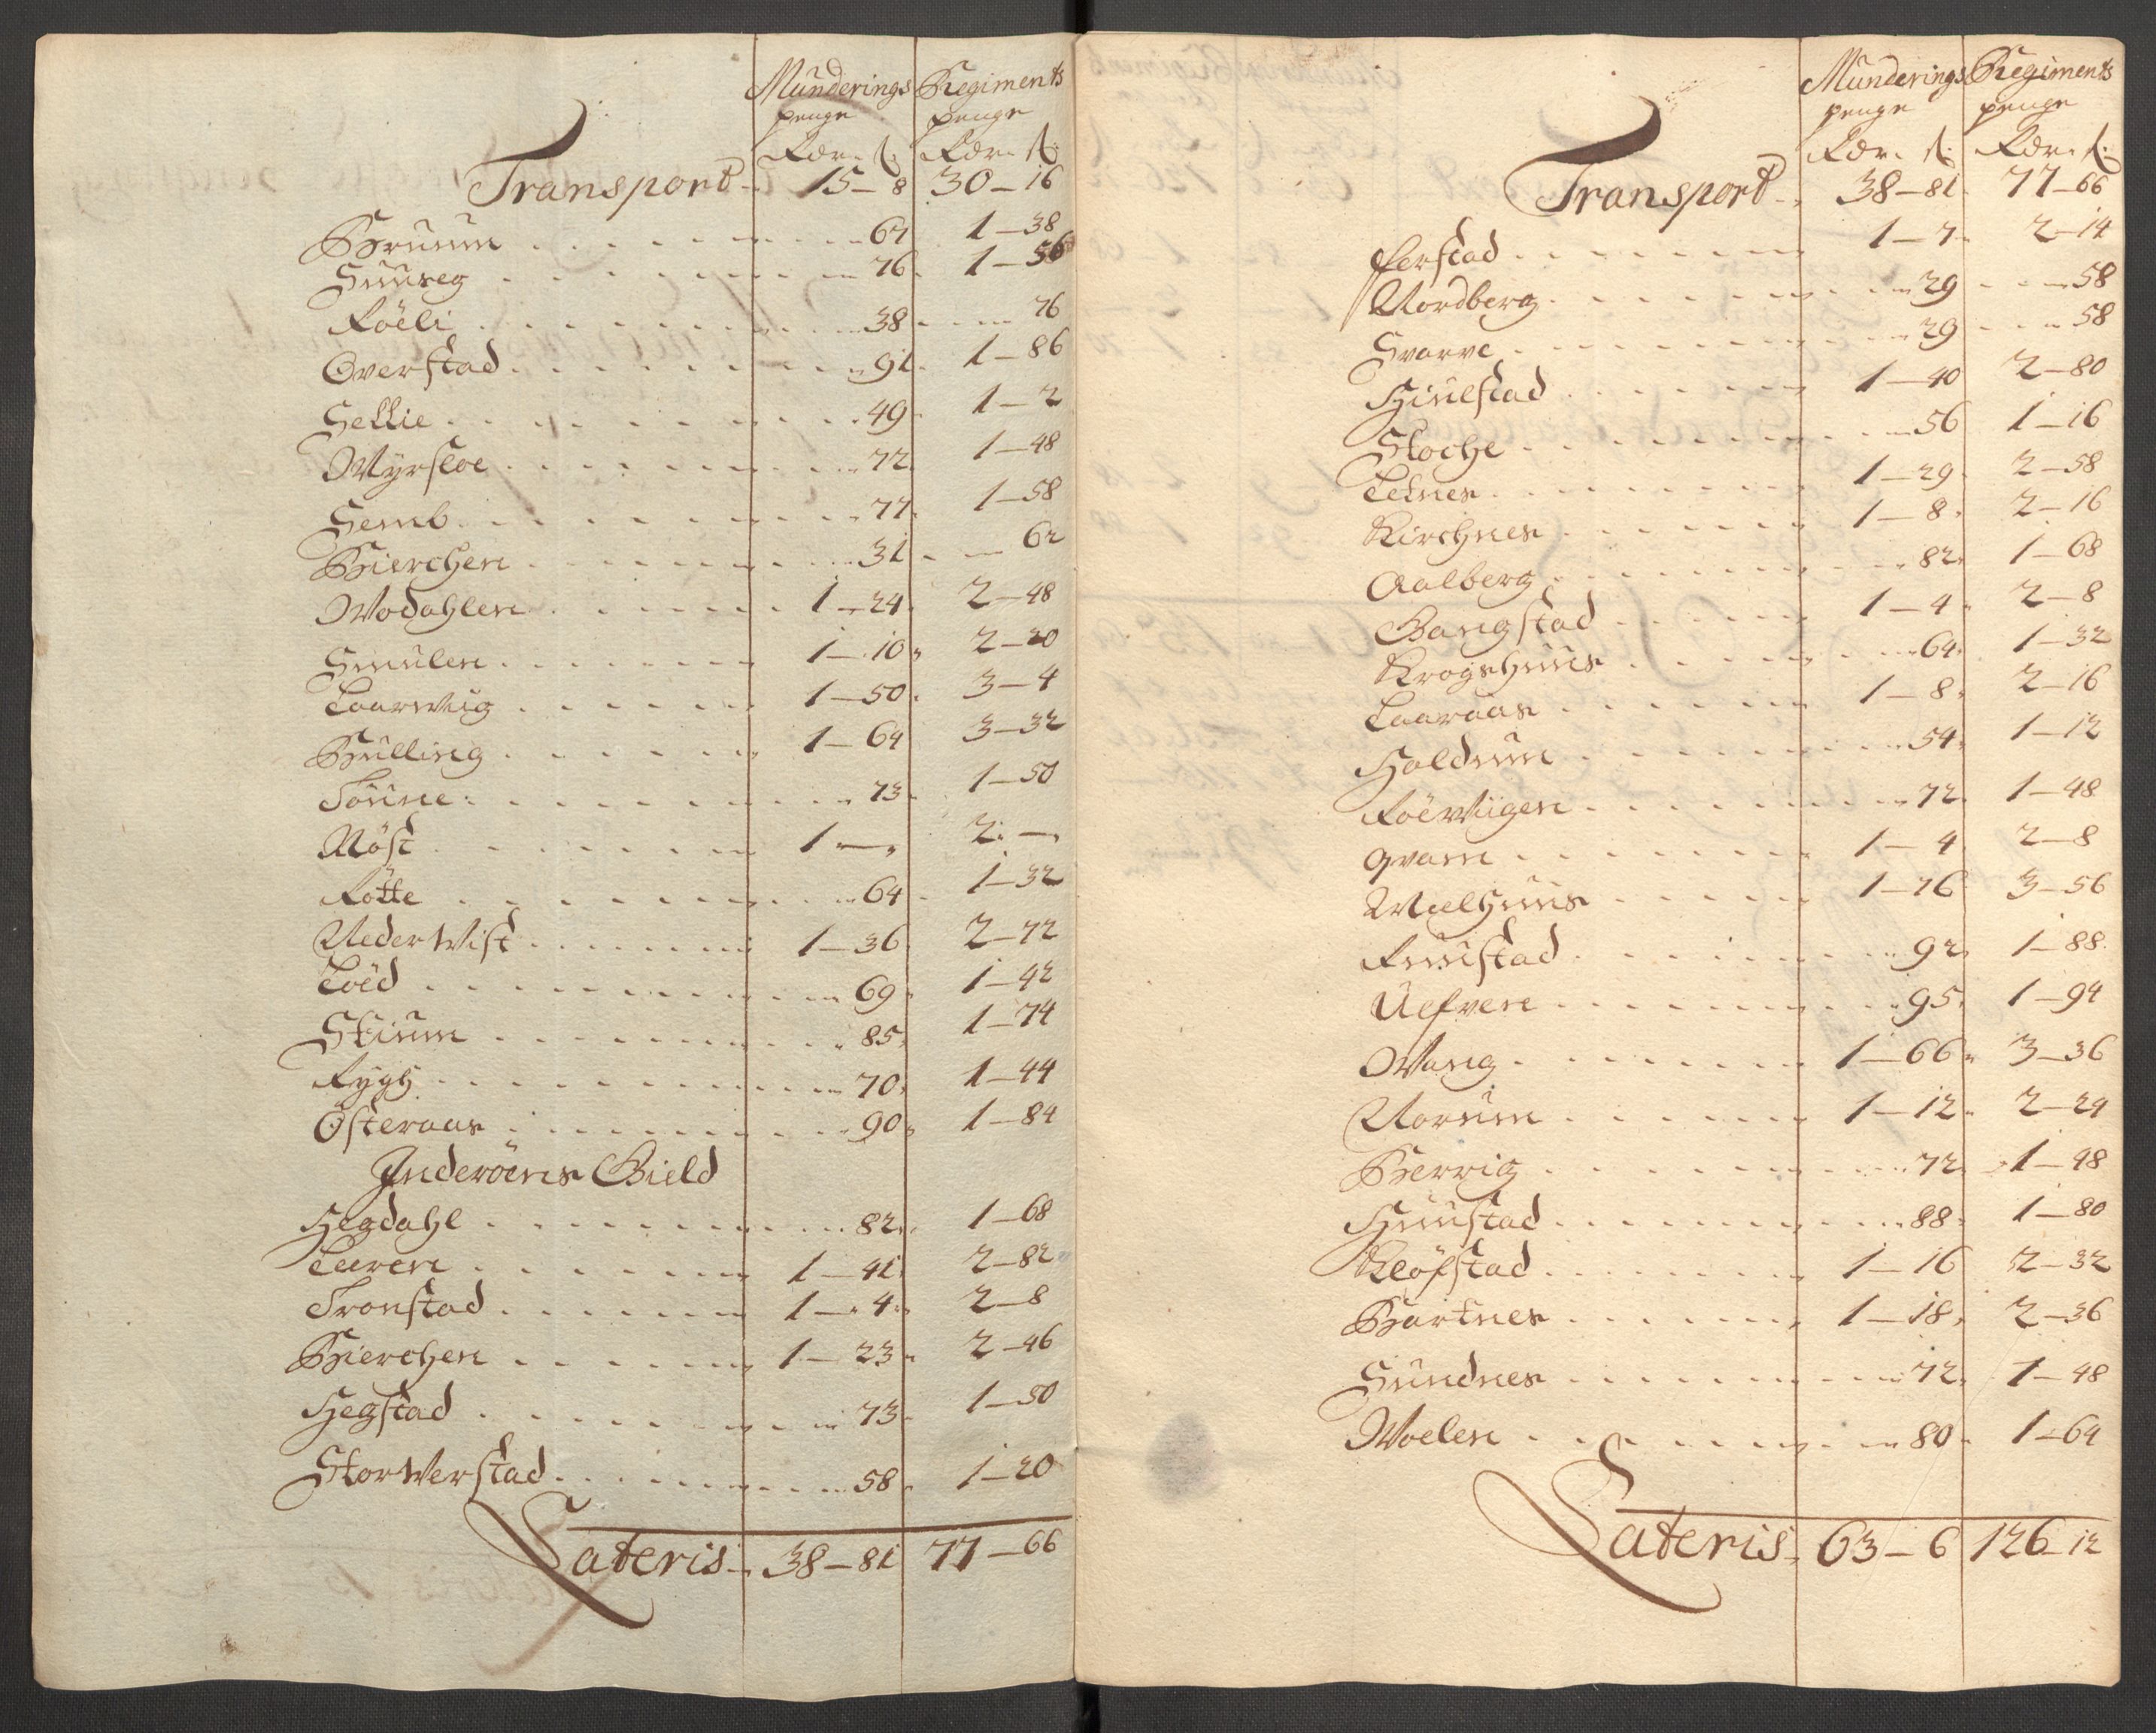 Munderings Regiments
penge penge
Rdr. ß. Rdr. ß.
Transport 15 – 8 30 – 16
Bruum 67 1 – 38
Suureg 76 1 – 56
Röeli 38 76
Overstad 91 1 – 86
Sellie 49 1 – 2
Myrsloe 72 1 – 48
Semb 77 1 – 58
Bierchen 31 62
Modahlen 1 – 24 2 – 48
Smulen 1 – 10 2 – 20
Laarwiig 1 – 50 3 – 4
Bulling 1 – 64 3 – 32
Tønne 73 1 – 50
Röst 1 – „ 2 – „
Rötte 64 1 – 32
Nederwist 1 – 36 2 – 72
Löed 69 1 – 42
Skium 85 1 – 74
Rygh 70 1 – 44
Österaas 90 1 – 84
Inderöens Gield
Hegdahl 82 1 – 68
Leeren 1 – 41 2 – 82
Tronstad 1 – 4 2 – 8
Bierchen 1 – 23 2 – 46
Hegstad 73 1 – 50
Storwerstad 58 1 – 20
Lateris 38 – 81 77 – 66
Munderings Regiments
penge penge
Rdr. ß. Rdr. ß.
Transport 38 – 81 77 – 66
Ferstad 1 – 7 2 – 14
Nordberg 29 58
Svarve 29 58
Hiulstad 1 – 40 2 – 80
Stoche 56 1 – 16
Letnes 1 – 29 2 – 58
Kirchnes 1 – 8 2 – 16
Aalberg 82 1 – 68
Gangstad 1 – 4 2 – 8
Krogshuus 64 1 – 32
Laaraas 1 – 8 2 – 16
Haldum 54 1 – 12
Röewiigen 72 1 – 48
Qvam 1 – 4 2 – 8
Melhuus 1 – 76 3 – 56
Ruustad 92 1 – 88
Uelfven 95 1 – 94
Wang 1 – 66 3 – 36
Norum 1 – 12 2 – 24
Berrig 72 1 – 48
Huustad 88 1 – 80
Klöfstad 1 – 16 2 – 32
Bartnes 1 – 18 2 – 36
Sundnes 72 1 – 48
Moelen 80 1 – 64
Lateris 63 – 6 126 – 12